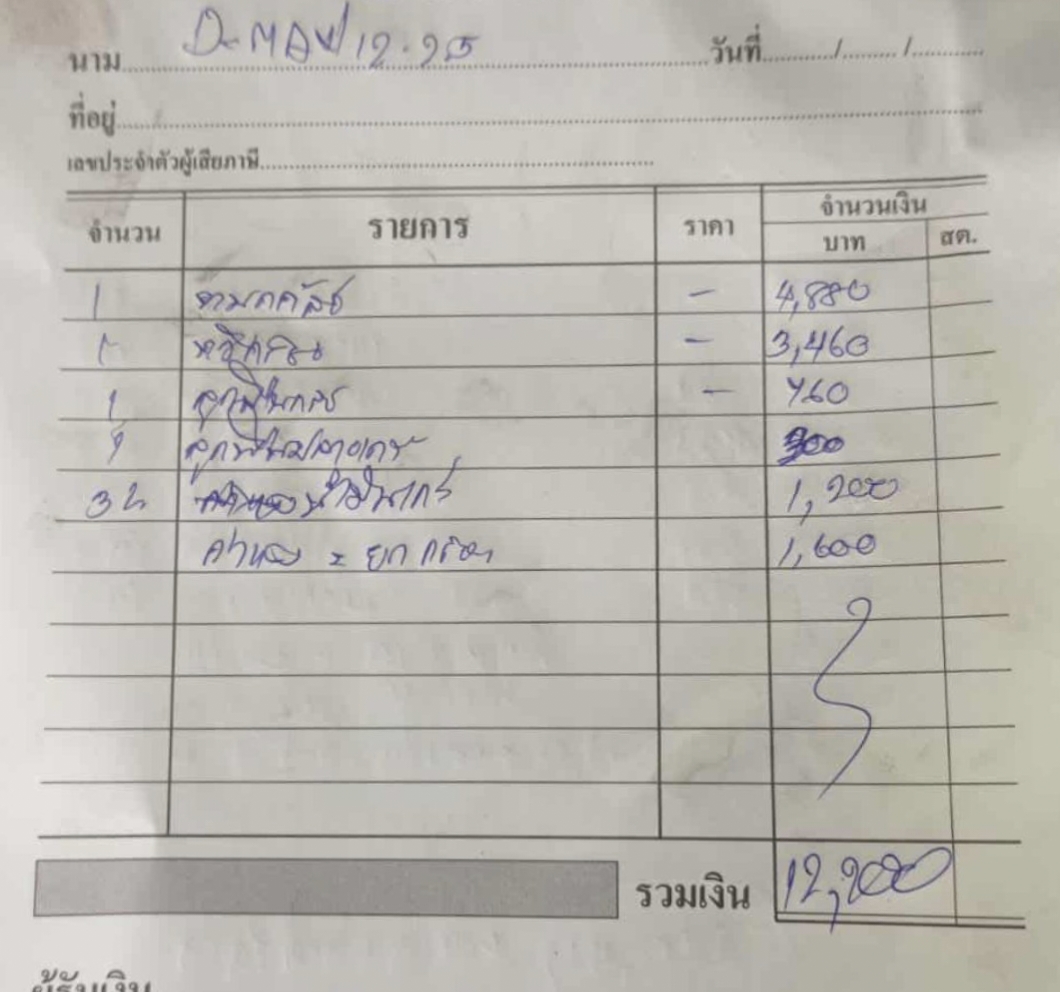 นาม D-MAX 12.25 วันที่ / /
ที่อยู่
เลขประจำตัวผู้เสียภาษี
จำนวน รายการ ราคา จำนวนเงิน
บาท สต.
1 - 4,880
1 - 3,460
1 - 760
1 ลูกปืนปลาย 300
3 น้ำมันเกียร์ 1,200
ค่าแรง = ยกเกียร์ 1,600
รวมเงิน 12,200
ผู้รับเงิน